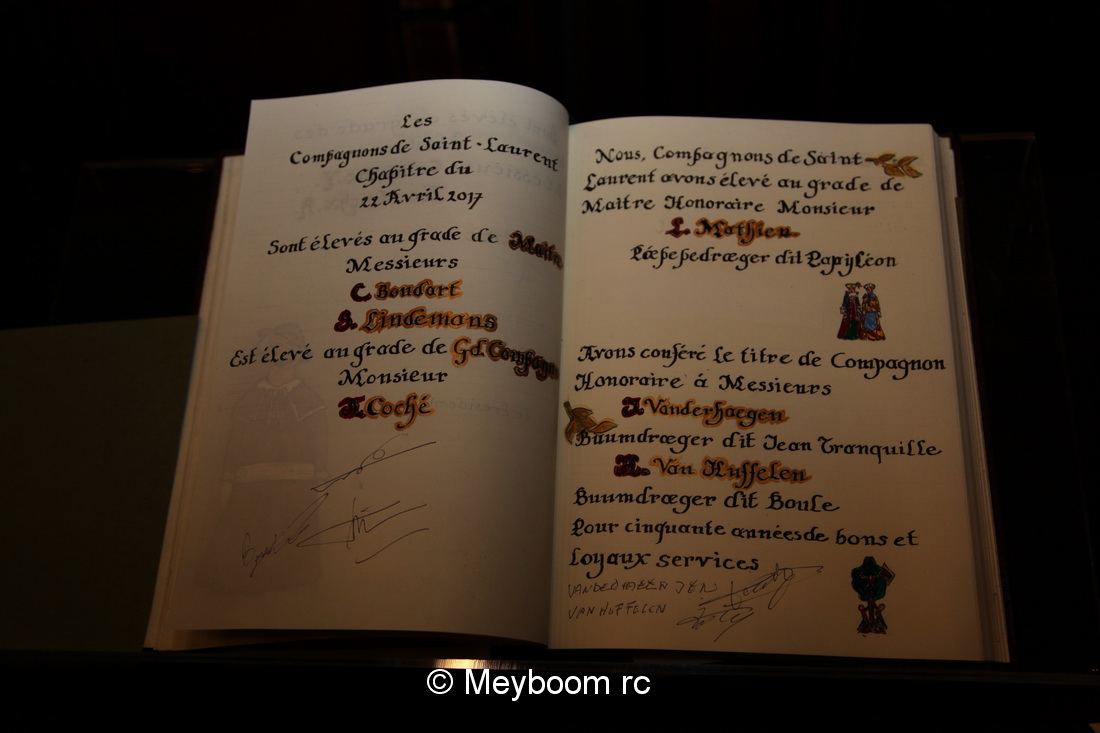 Les
Compagnons de Saint-Laurent
Chapitre du
22 Avril 2017
Sont élevés au grade de Maitre
Messieurs
C Boudart
S. Lindemans
Est élevé au grade de Gd. Compagnon
Monsieur
Coché
Nous, Compagnons de Saint-
Laurent avons élevé au grade de
Maitre Honoraire Monsieur
L. Mathieu
Pœpepedræger dit Papyléon
Avons conféré le titre de Compagnon
Honoraire á Messieurs
J. Vanderhaegen
Buumdræger dit Jean Tranquille
Van Huffelen
Buumdræger dit Boule
Pour cinquante années de bons et
loyaux services
VAN HUFFELEN
© Meyboom rc